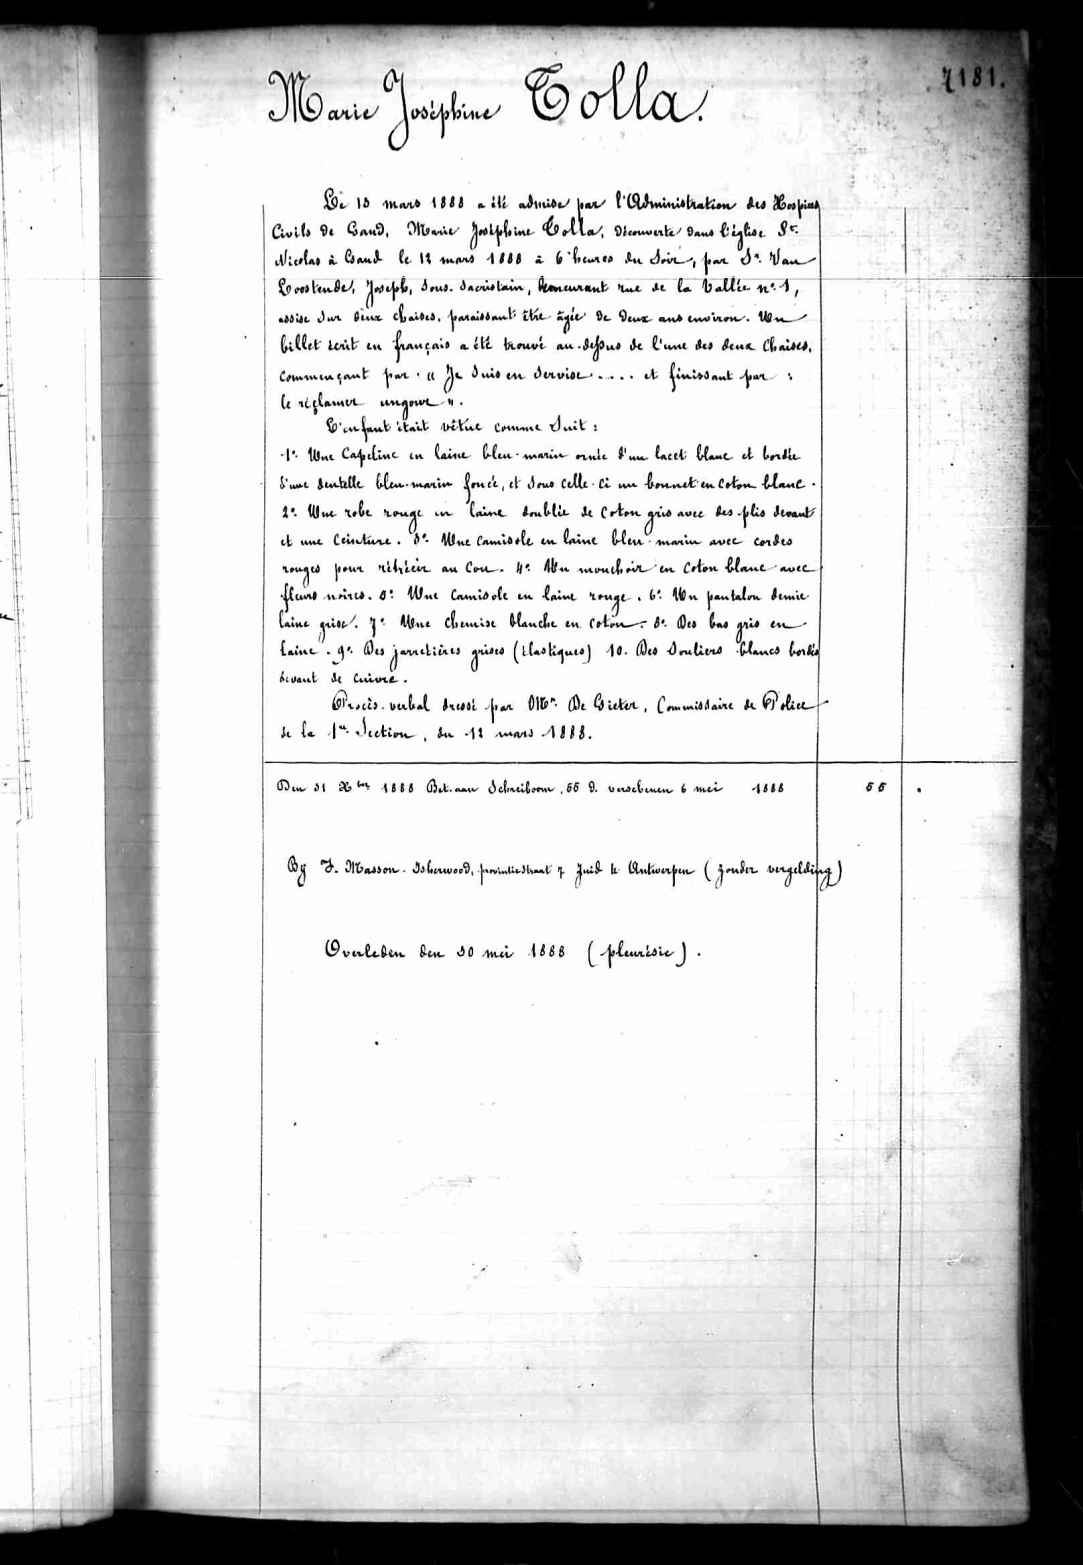 7181.
Marie Joséphine Tolla.
Le 13 mars 1888 a été admise par l'Administration des Hospices
Civils de Gand, Marie Joséphine Tolla, découverte dans l'église St.
Nicolas à Gand le 12 mars 1888 à 6 heures du soir, par Sr. Van
Loostende, Joseph, sous-sacristain, demeurant rue de la Vallée no. 1,
assise sur deux chaises, paraissant être âgée de deux ans environ. Un
billet écrit en français a été trouvé au-dessus de l'une des deux chaises,
commençant par « Je suis en servise ..... et finissant par :
le réclamer ungour ».
L'enfant était vêtue comme suit :
1o. Une Capeline en laine bleu-marin ornée d'un lacet blanc et bordée
d'une dentelle bleu-marin foncée, et sous celle-ci un bonnet en coton blanc.
2o. Une robe rouge en laine doublée de coton gris avec des plis devant
et une ceinture. 3o. Une camisole en laine bleu-marin avec cordes
rouges pour rétrécir au cou. 4o. Un mouchoir en coton blanc avec
fleurs noires. 5o. Une camisole en laine rouge. 6o. Un pantalon demie
laine grise. 7o. Une chemise blanche en coton. 8o. Des bas gris en
laine. 9o. Des jarretières grises (élastiques) 10. Des souliers blancs bordés
devant de cuivre.
Procès-verbal dressé par Mr. De Gieter, Commissaire de Police
de la 1re. Section, du 12 mars 1888.
Den 31 Xber 1888 Bet. aan Schreiboom, 55 d. verschenen 6 mei 1888 55 .
By F. Masson-Isherwood, provinciestraat 7 Zuid te Antwerpen (zonder vergelding)
Overleden den 30 mei 1888 (pleurésie).